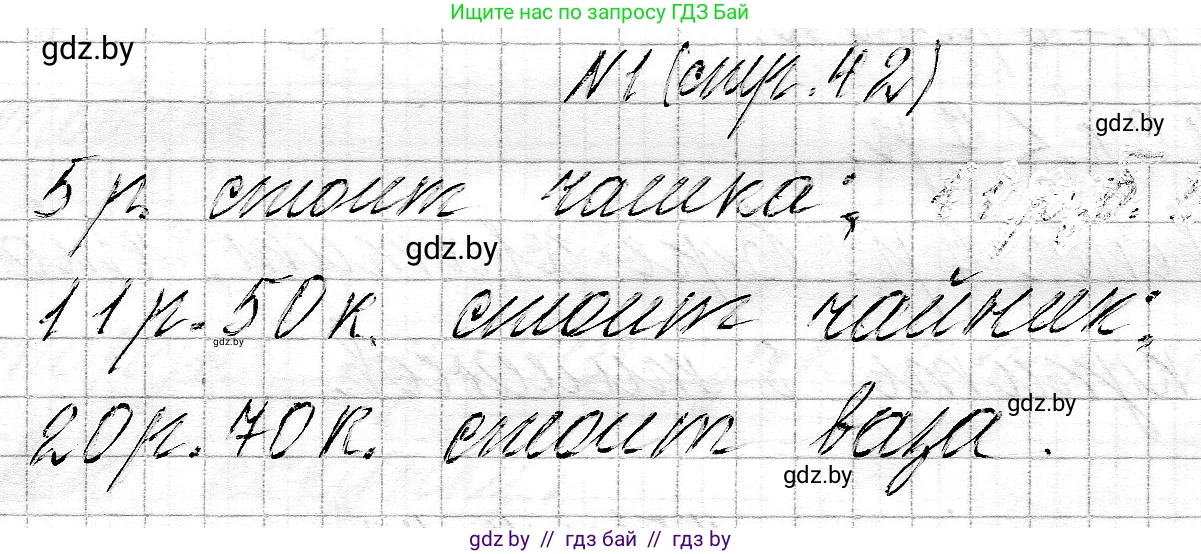 Ищите нас по запросу ГДЗ Бай
gdz.by
№1 (стр. 42)
gdz.by
5 р. стоит чашка;
gdz.by
11 р. 50 к. стоит чайник;
gdz.by
20 р. 70 к. стоит ваза.
gdz.by
gdz.by
gdz.by // гдз бай // гдз by